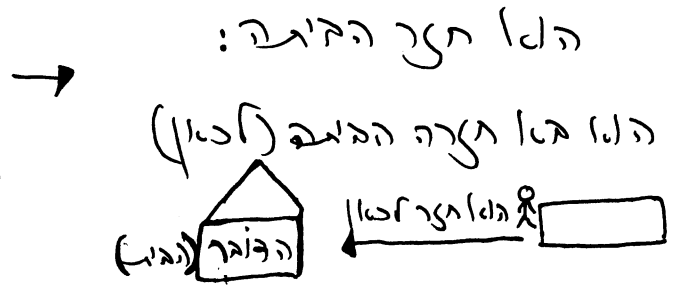 הוא חזר הביתה:
הוא בא חזרה הביתה (לכאן)
הוא חזר לכאן
הדובר (הבית)